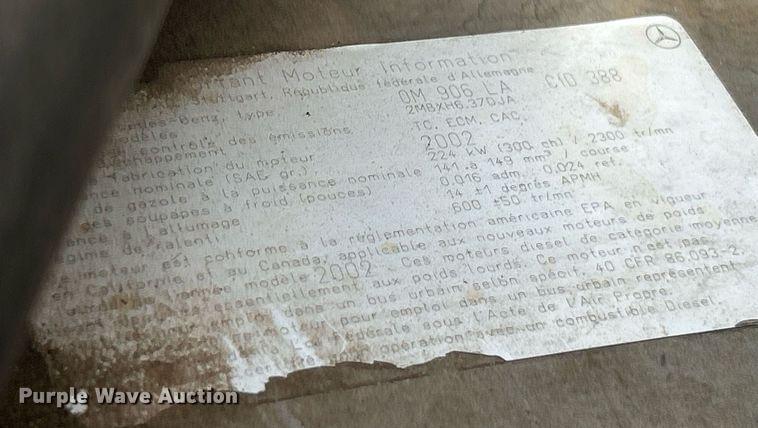 Important Moteur Information
AG, Stuttgart, Républiqus fédérale d'Allemagne
Mercedes-Benz, type, OM 906 LA CID 388
modèles 2MBXH6.37DJA
contrôle des émissions TC, ECM, CAC,
d'échappement
fabrication du moteur 2002
nominale (SAE gr.) 224 kW (300 ch) / 2300 tr/mn
de gazole à la puissance nominale 141 à 149 mm³ / course
soupapes à froid (pouces) 0,016 adm. 0,024 ref.
allumage 14 ±1 degrés APMH
ralenti 600 ±50 tr/mn
moteur est conforme à la réglementation américaine EPA en vigueur
en Californie et au Canada, applicable aux nouveaux moteurs de poids
modèle 2002 Ces moteurs diesel de catégorie moyenne
essentiellement aux poids-lourds. Ce moteur n'est pas
emploi dans un bus urbain selon spécif. 40 CFR 86.093-2.
moteur pour emploi dans un bus urbain représentent
fédérale sous l'Acte de l'Air Propre.
opération avec un combustible Diesel.
Purple Wave Auction